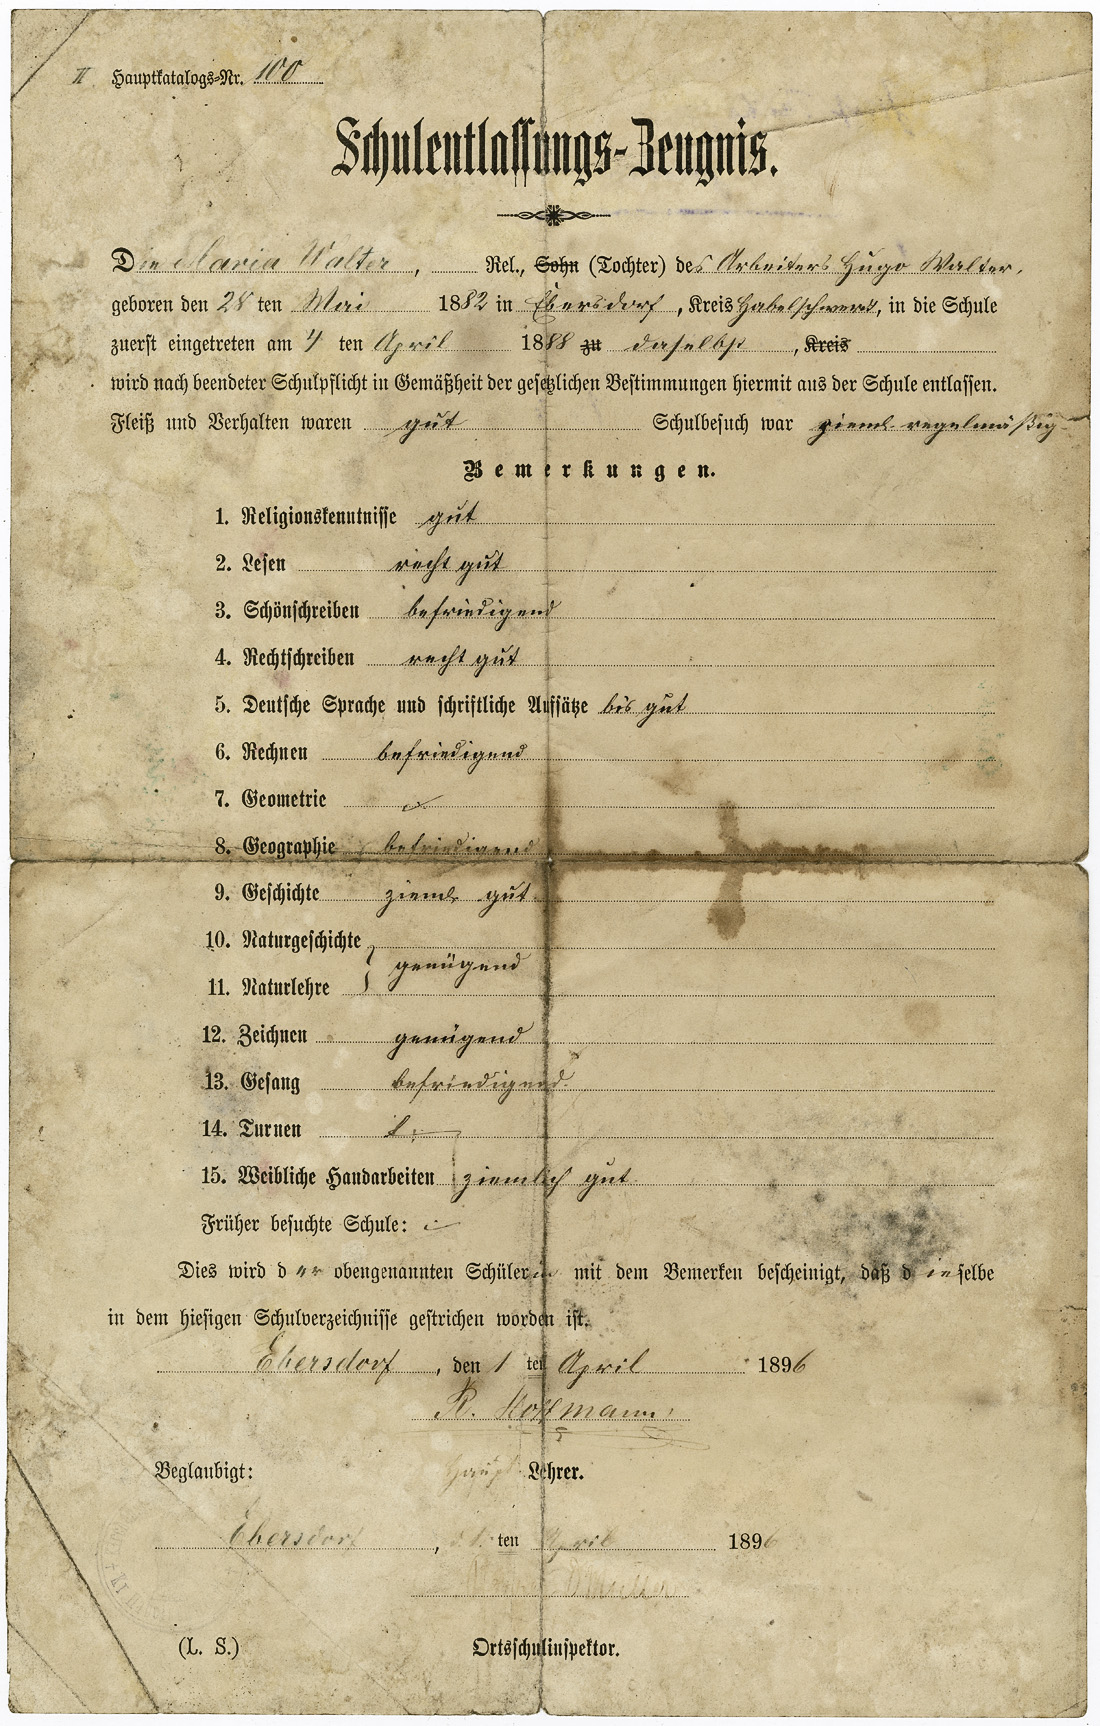 II Hauptkatalogs-Nr. 100
Schulentlassungs-Zeugnis.
Die Maria Walter, Rel., Sohn (Tochter) des Arbeiters Hugo Walter,
geboren den 28 ten Mai 1882 in Ebersdorf, Kreis Habelschwerdt, in die Schule
zuerst eingetreten am 4 ten April 1888 zu daselbst, Kreis
wird nach beendeter Schulpflicht in Gemäßheit der gesetzlichen Bestimmungen hiermit aus der Schule entlassen.
Fleiß und Verhalten waren gut Schulbesuch war zieml. regelmäßig
Bemerkungen.
1. Religionskenntnisse gut
2. Lesen recht gut
3. Schönschreiben befriedigend
4. Rechtschreiben recht gut
5. Deutsche Sprache und schriftliche Aufsätze bis gut
6. Rechnen befriedigend
7. Geometrie
8. Geographie befriedigend
9. Geschichte zieml. gut
10. Naturgeschichte
genügend
11. Naturlehre
12. Zeichnen genügend
13. Gesang befriedigend
14. Turnen
15. Weibliche Handarbeiten ziemlich gut
Früher besuchte Schule:
Dies wird der obengenannten Schülerin mit dem Bemerken bescheinigt, daß dieselbe
in dem hiesigen Schulverzeichnisse gestrichen worden ist.
Ebersdorf, den 1 ten April 1896
R. Hoffmann
Beglaubigt: Haupt Lehrer.
Ebersdorf, ten April 1896
(L. S.) Ortsschulinspektor.